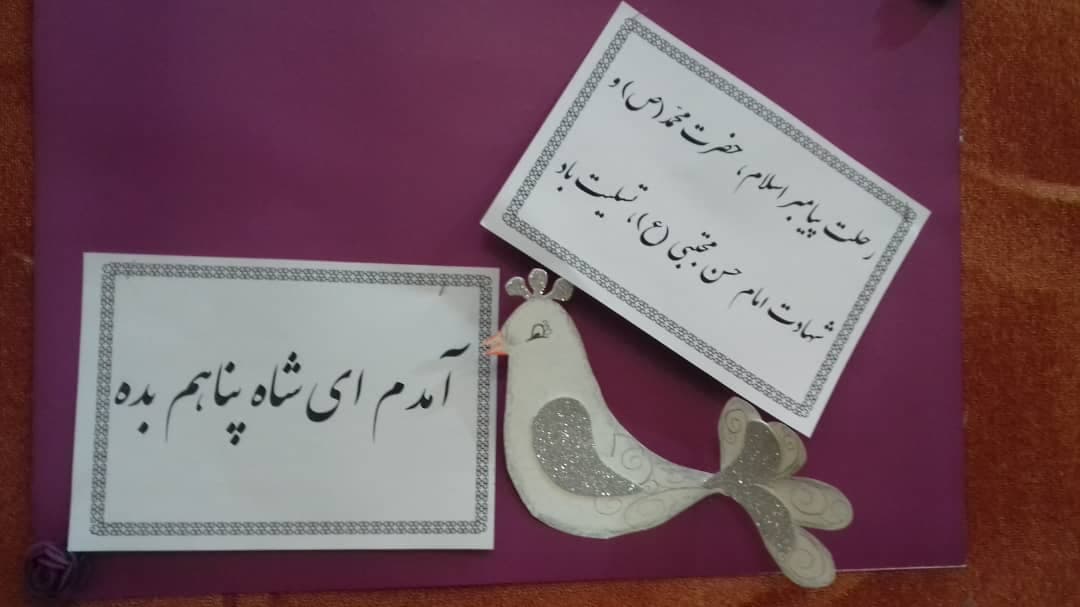 رحلت پیامبر اسلام، حضرت محمّد (ص) و
شهادت امام حسن مجتبی (ع)، تسلیت باد
آمدم ای شاه پناهم بده